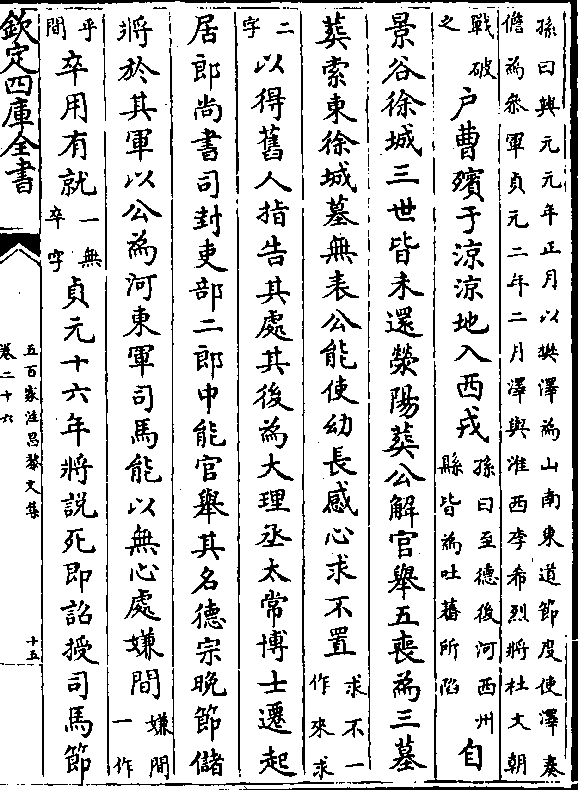 孫曰興元元年正月以樊澤爲山南東道節度使澤奏
儋爲叅軍貞元二年二月澤與淮西李希烈將杜文朝
戰破之戶曹殯于涼涼地入西戎孫曰至德後河西州縣皆爲吐蕃所陷自
景谷徐城三世皆未還滎陽葬公解官舉五喪爲三墓
葬索東徐城墓無表公能使幼長感心求不置求不一作來求
二字以得舊人指告其處其後爲大理丞太常博士遷起
居郎尚書司封吏部二郎中能官舉其名德宗晚節儲
將於其軍以公爲河東軍司馬能以無心處嫌間嫌間一作
乎間卒用有就一無卒字貞元十六年將說死即詔授司馬節
欽定四庫全書
五百家注昌黎文集
卷二十六
十五